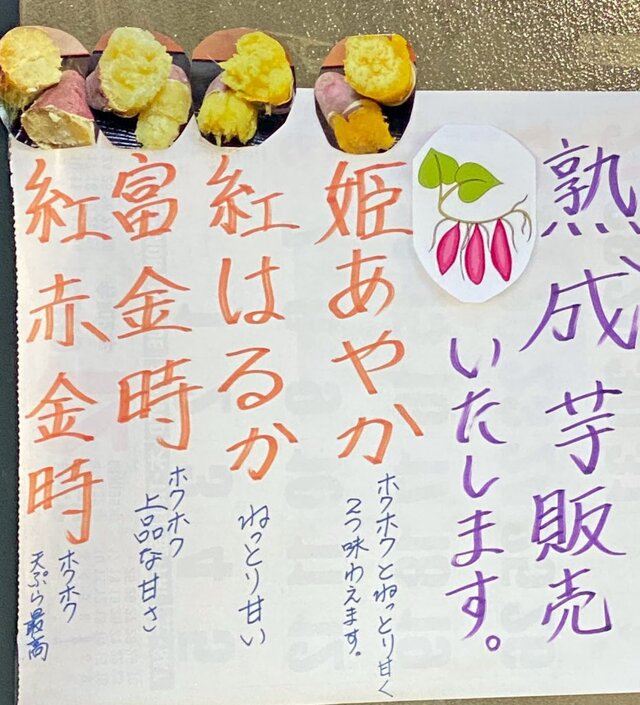 熟成芋販売
いたします。
姫あやか
ホクホクとねっとり甘く
2つ味わえます。
紅はるか
ねっとり甘い
富金時
ホクホク
上品な甘さ
紅赤金時
ホクホク
天ぷら最高